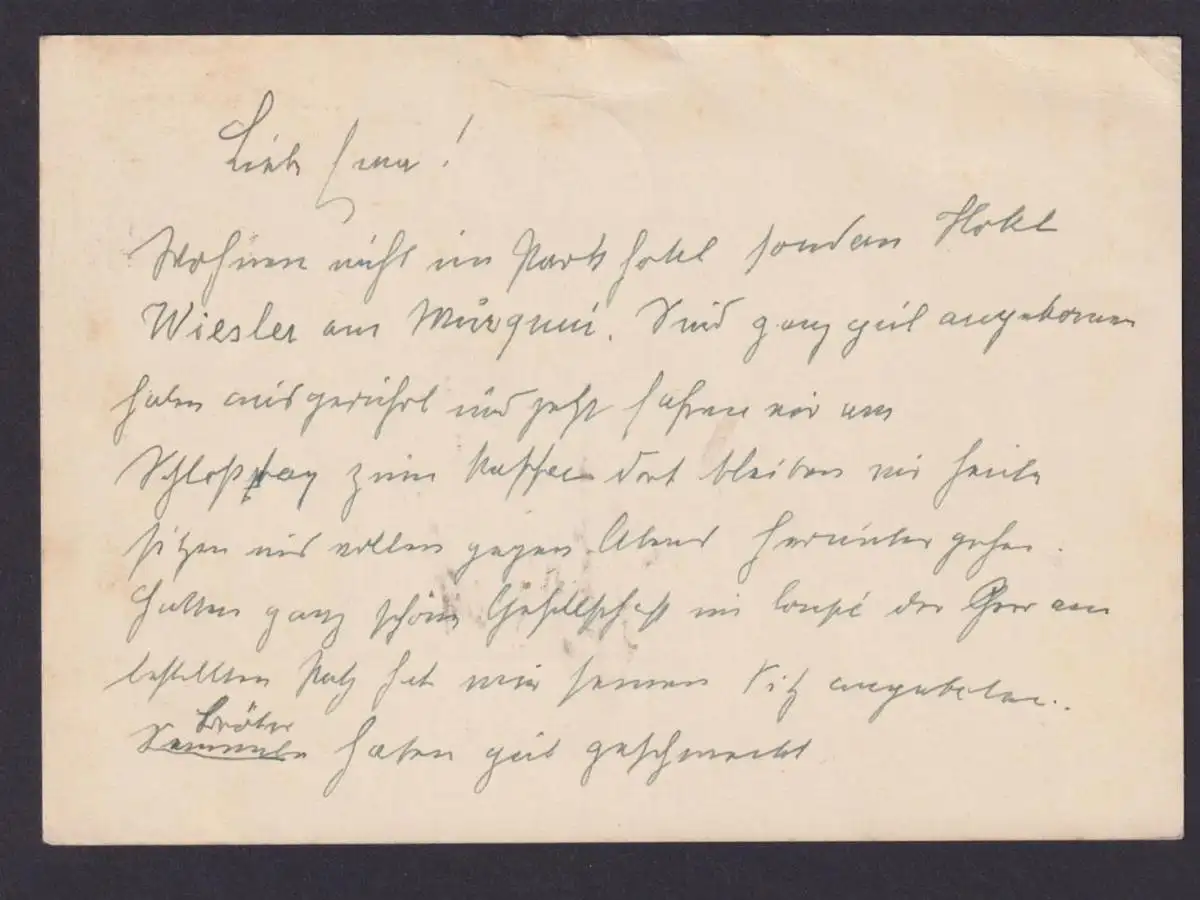 Liebe Erna!
Wohnen nicht im Park hotel sondern Hotel
Wiesler am Murquai. Sind ganz gut angekommen
haben ausgeruht und jetzt fahren wir am
Schloßberg zum Kaffee dort bleiben wir heute
sitzen und wollen gegen Abend herunter gehen.
Hatten ganz schöne Gesellschaft im Coupé der Herr am
bestellten Platz hat mir seinen Sitz angeboten..
Brötchen
Semmeln haben gut geschmeckt